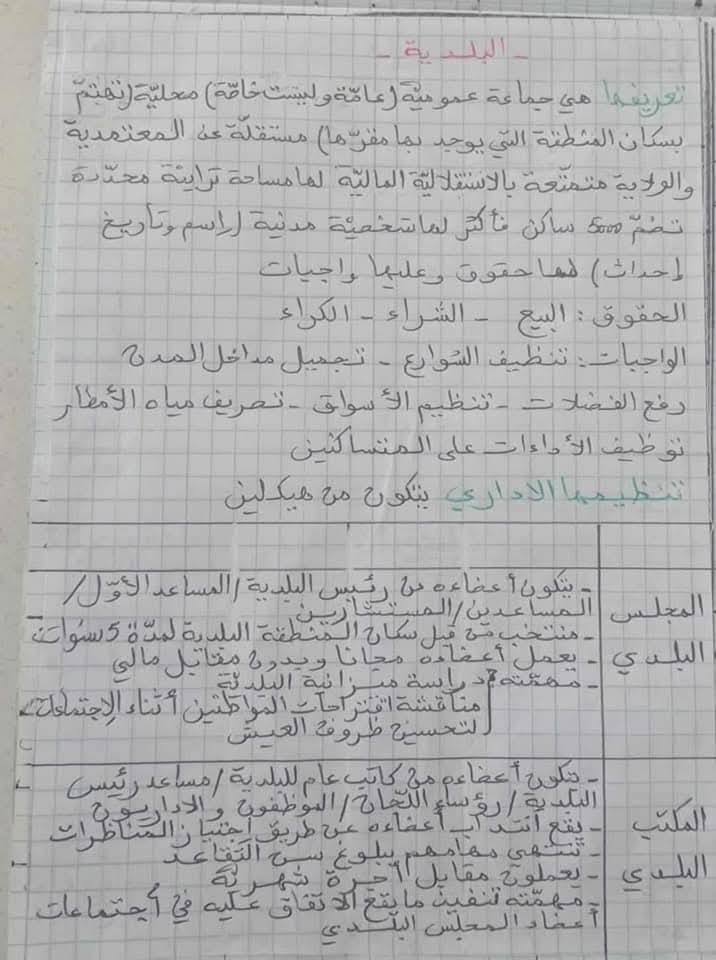 - البلدية -
تعريفها هي جماعة عمومية (عامّة وليست خاصّة) محليّة (تهتمّ
بسكان المنطقة التي يوجد بها مقرّها) مستقلّة عن المعتمدية
والولاية متمتّعة بالاستقلاليّة الماليّة لها مساحة ترابيّة محدّدة
تضمّ 5000 ساكن فأكثر لها شخصيّة مدنية (إسم وتاريخ
إحداث) لها حقوق وعليها واجبات
الحقوق: البيع - الشراء - الكراء
الواجبات: تنظيف الشوارع - تجميل مداخل المدن
رفع الفضلات - تنظيم الأسواق - تصريف مياه الأمطار
توظيف الأداءات على المتساكنين
تنظيمها الاداري يتكون من هيكلين
المجلس البلدي
- يتكون أعضاءه من رئيس البلدية / المساعد الأوّل /
المساعدين / المستشارين
- منتخب من قبل سكان المنطقة البلدية لمدّة 5 سنوات
- يعمل أعضاءه مجانا وبدون مقابل مالي
- مهمّته دراسة ميزانية البلديّة
مناقشة اقتراحات المواطنين أثناء الإجتماعات
لتحسين ظروف العيش
المكتب البلدي
- يتكون أعضاءه من كاتب عام للبلدية / مساعد رئيس
البلدية / رؤساء اللّجان / الموظفون والاداريون
- يقع أنتداب أعضاءه عن طريق اجتياز المناظرات
- تنتهي مهامهم ببلوغ سن التقاعد
- يعملون مقابل أجرة شهريّة
- مهمّته تنفيذ ما يقع الاتفاق عليه في أجتماعات
أعضاء المجلس البلدي